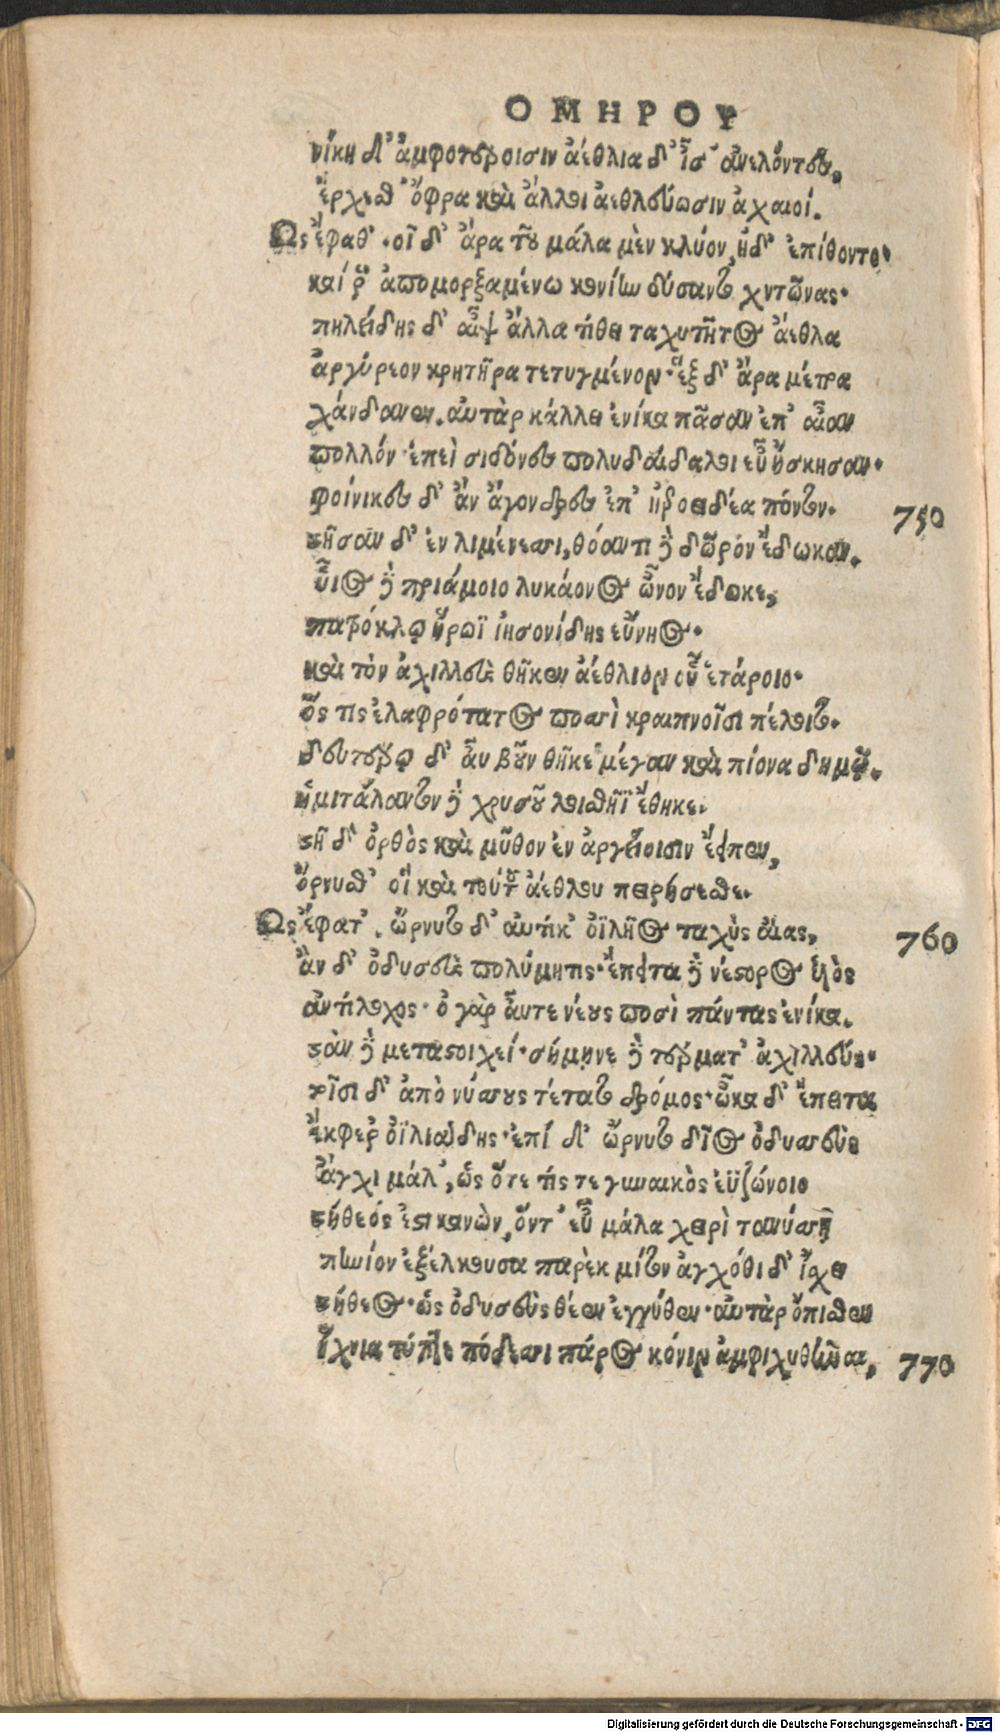 ΟΜΗΡΟΥ
νίκη δ' ἀμφοτέροισιν ἀέθλια δ' ἶσ' ἀνελόντες,
ἔρχεσθ' ὄφρα καὶ ἄλλοι ἀεθλεύωσιν ἀχαιοί.
Ως ἔφαθ'. οἳ δ' ἄρα τοῦ μάλα μὲν κλύον, ἠδ' ἐπίθοντο·
καί ῥ' ἀπομορξαμένω κονίην δύσαντο χιτῶνας·
πηλείδης δ' αἶψ' ἄλλα τίθει ταχυτῆτος ἄεθλα
ἀργύρεον κρητῆρα τετυγμένον· ἓξ δ' ἄρα μέτρα
χάνδανεν. αὐτὰρ κάλλει ἐνίκα πᾶσαν ἐπ' αἶαν
πολλόν· ἐπεὶ σιδόνες πολυδαίδαλοι εὖ ἤσκησαν·
φοίνικες δ' ἂν ἄγον δρες ἐπ' ἠεροειδέα πόντον·
750
στῆσαν δ' ἐν λιμένεσσι, θόαντι δὲ δῶρόν ἔδωκαν.
ὗιος δὲ πριάμοιο λυκάονος ὦνον ἔδωκε,
πατρόκλῳ ἥρωϊ ἰησονίδης εὔνηος·
καὶ τὸν ἀχιλλεὺς θῆκεν ἀέθλιον οὗ ἑτάροιο·
ὅς τις ἐλαφρότατος ποσσὶ κραιπνοῖσι πέλοιτο·
δευτέρῳ δ' αὖ βοῦν θῆκε μέγαν καὶ πίονα δημῷ.
ἡμιτάλαντον δὲ χρυσοῦ λοισθήϊ' ἔθηκε.
στῆ δ' ὀρθὸς καὶ μῦθον ἐν ἀργείοισιν ἔειπεν,
ὄρνυσθ' οἳ καὶ τούτου ἀέθλου πειρήσεσθε.
Ως ἔφατ'. ὤρνυτο δ' αὐτίκ' ὀϊλῆος ταχὺς αἴας,
760
ἂν δ' ὀδυσσεὺς πολύμητις· ἔπειτα δὲ νέστορος ὑιὸς
ἀντίλοχος· ὁ γὰρ αὖτε νέους ποσὶ πάντας ἐνίκα.
στὰν δὲ μεταστοιχεί· σήμηνε δὲ τέρματ' ἀχιλλεύς·
τοῖσι δ' ἀπὸ νύσσης τέτατο δρόμος· ὦκα δ' ἔπειτα
ἔκφερ' ὀϊλιάδης· ἐπὶ δ' ὤρνυτο δῖος ὀδυσσεὺς
ἄγχι μάλ', ὡς ὅτε τίς τε γυναικὸς ἐϋζώνοιο
στήθεός ἐστι κανὼν, ὅντ' εὖ μάλα χερὶ τανύσσῃ
πηνίον ἐξέλκουσα παρὲκ μίτον ἀγχόθι δ' ἴσχει
στήθεος· ὣς ὀδυσσεὺς θέεν ἐγγύθεν· αὐτὰρ ὄπισθεν
ἴχνια τύπτε πόδεσσι πάρος κόνιν ἀμφιχυθῆναι,
770
Digitalisierung gefördert durch die Deutsche Forschungsgemeinschaft - DFG